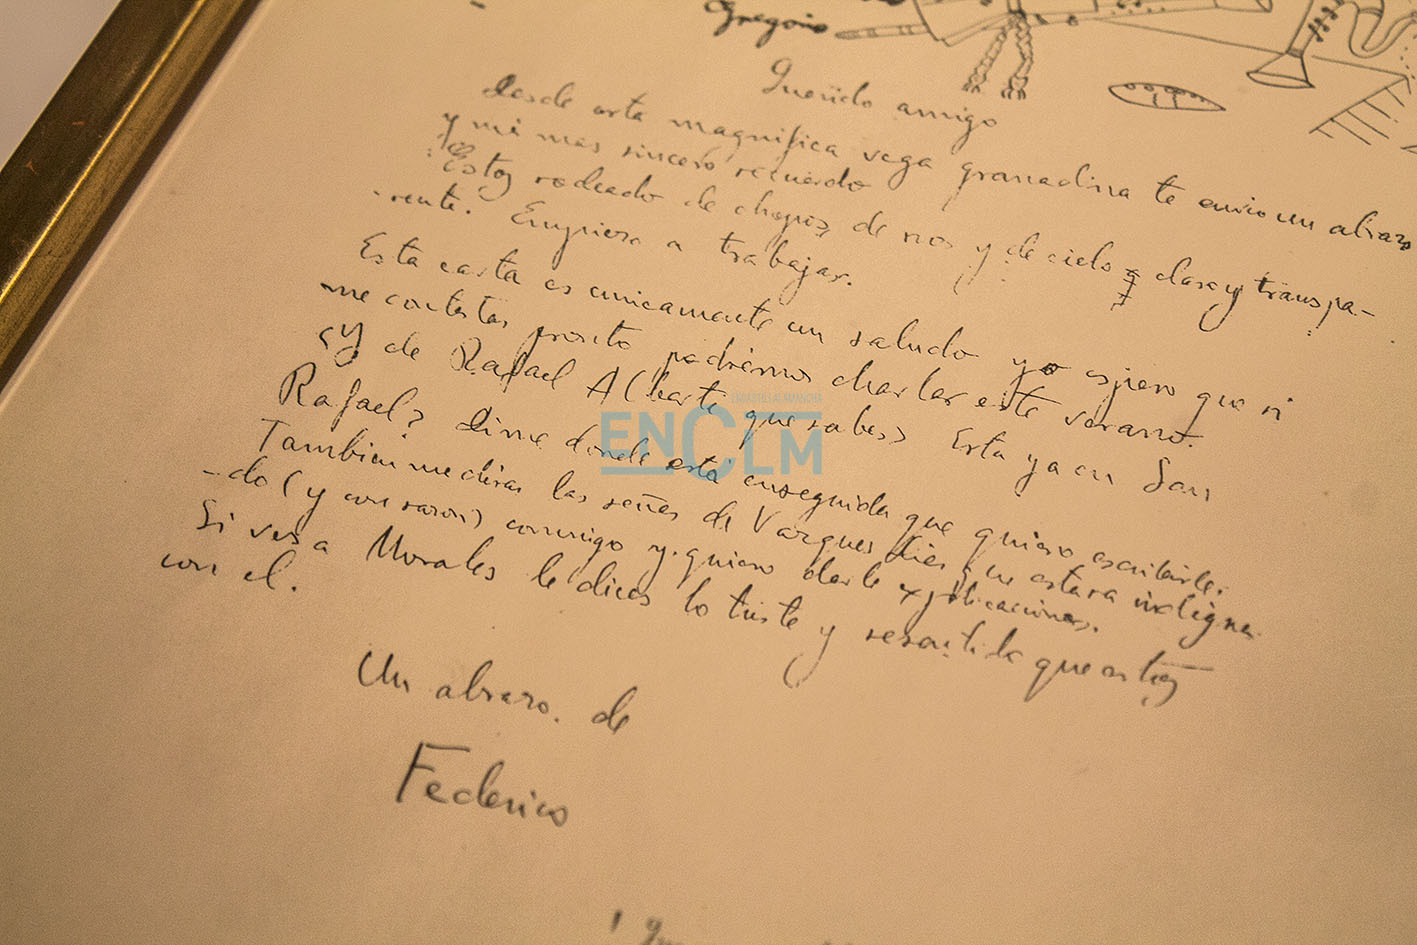 Gregorio
Querido amigo
Desde esta magnifica vega granadina te envio un abrazo
y mi mas sincero recuerdo
Estoy rodeado de chopos, de rios y de cielo claro y transpa-
-rente. Empiezo a trabajar.
Esta carta es unicamente un saludo y espero que si
me contestas pronto podremos charlar este verano.
¿Y de Rafael Alberti que sabes? Esta ya en San
Rafael? Dime donde está enseguida que quiero escribirle.
Tambien me diras las señas de Vazques Dias que estara indigna-
-do (y con razon) conmigo y quiero darle explicaciones.
Si ves a Morales le dices lo triste y resentido que estoy
con el.
Un abrazo. de
Federico
ENCASTILLALAMANCHA
ENCLM